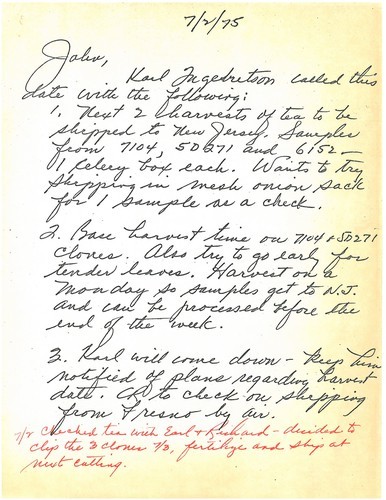 7/2/75
John,
Karl Ingebretson called this
date with the following:
1. Next 2 harvests of tea to be
shipped to New Jersey. Samples
from 7104, SD271 and 6152 -
1 Celery box each. Wants to try
shipping in mesh onion sack
for 1 sample as a check.
2. Base harvest time on 7104 + SD271
clones. Also try to go early for
tender leaves. Harvest on a
Monday so samples get to N.J.
and can be processed before the
end of the week.
3. Karl will come down - keep him
notified of plans regarding harvest
date. OK to check on shipping
from Fresno by air.
7/2 Checked tea with Earl + Richard - decided to
clip the 3 clones 7/3, fertilize and ship at
next cutting.